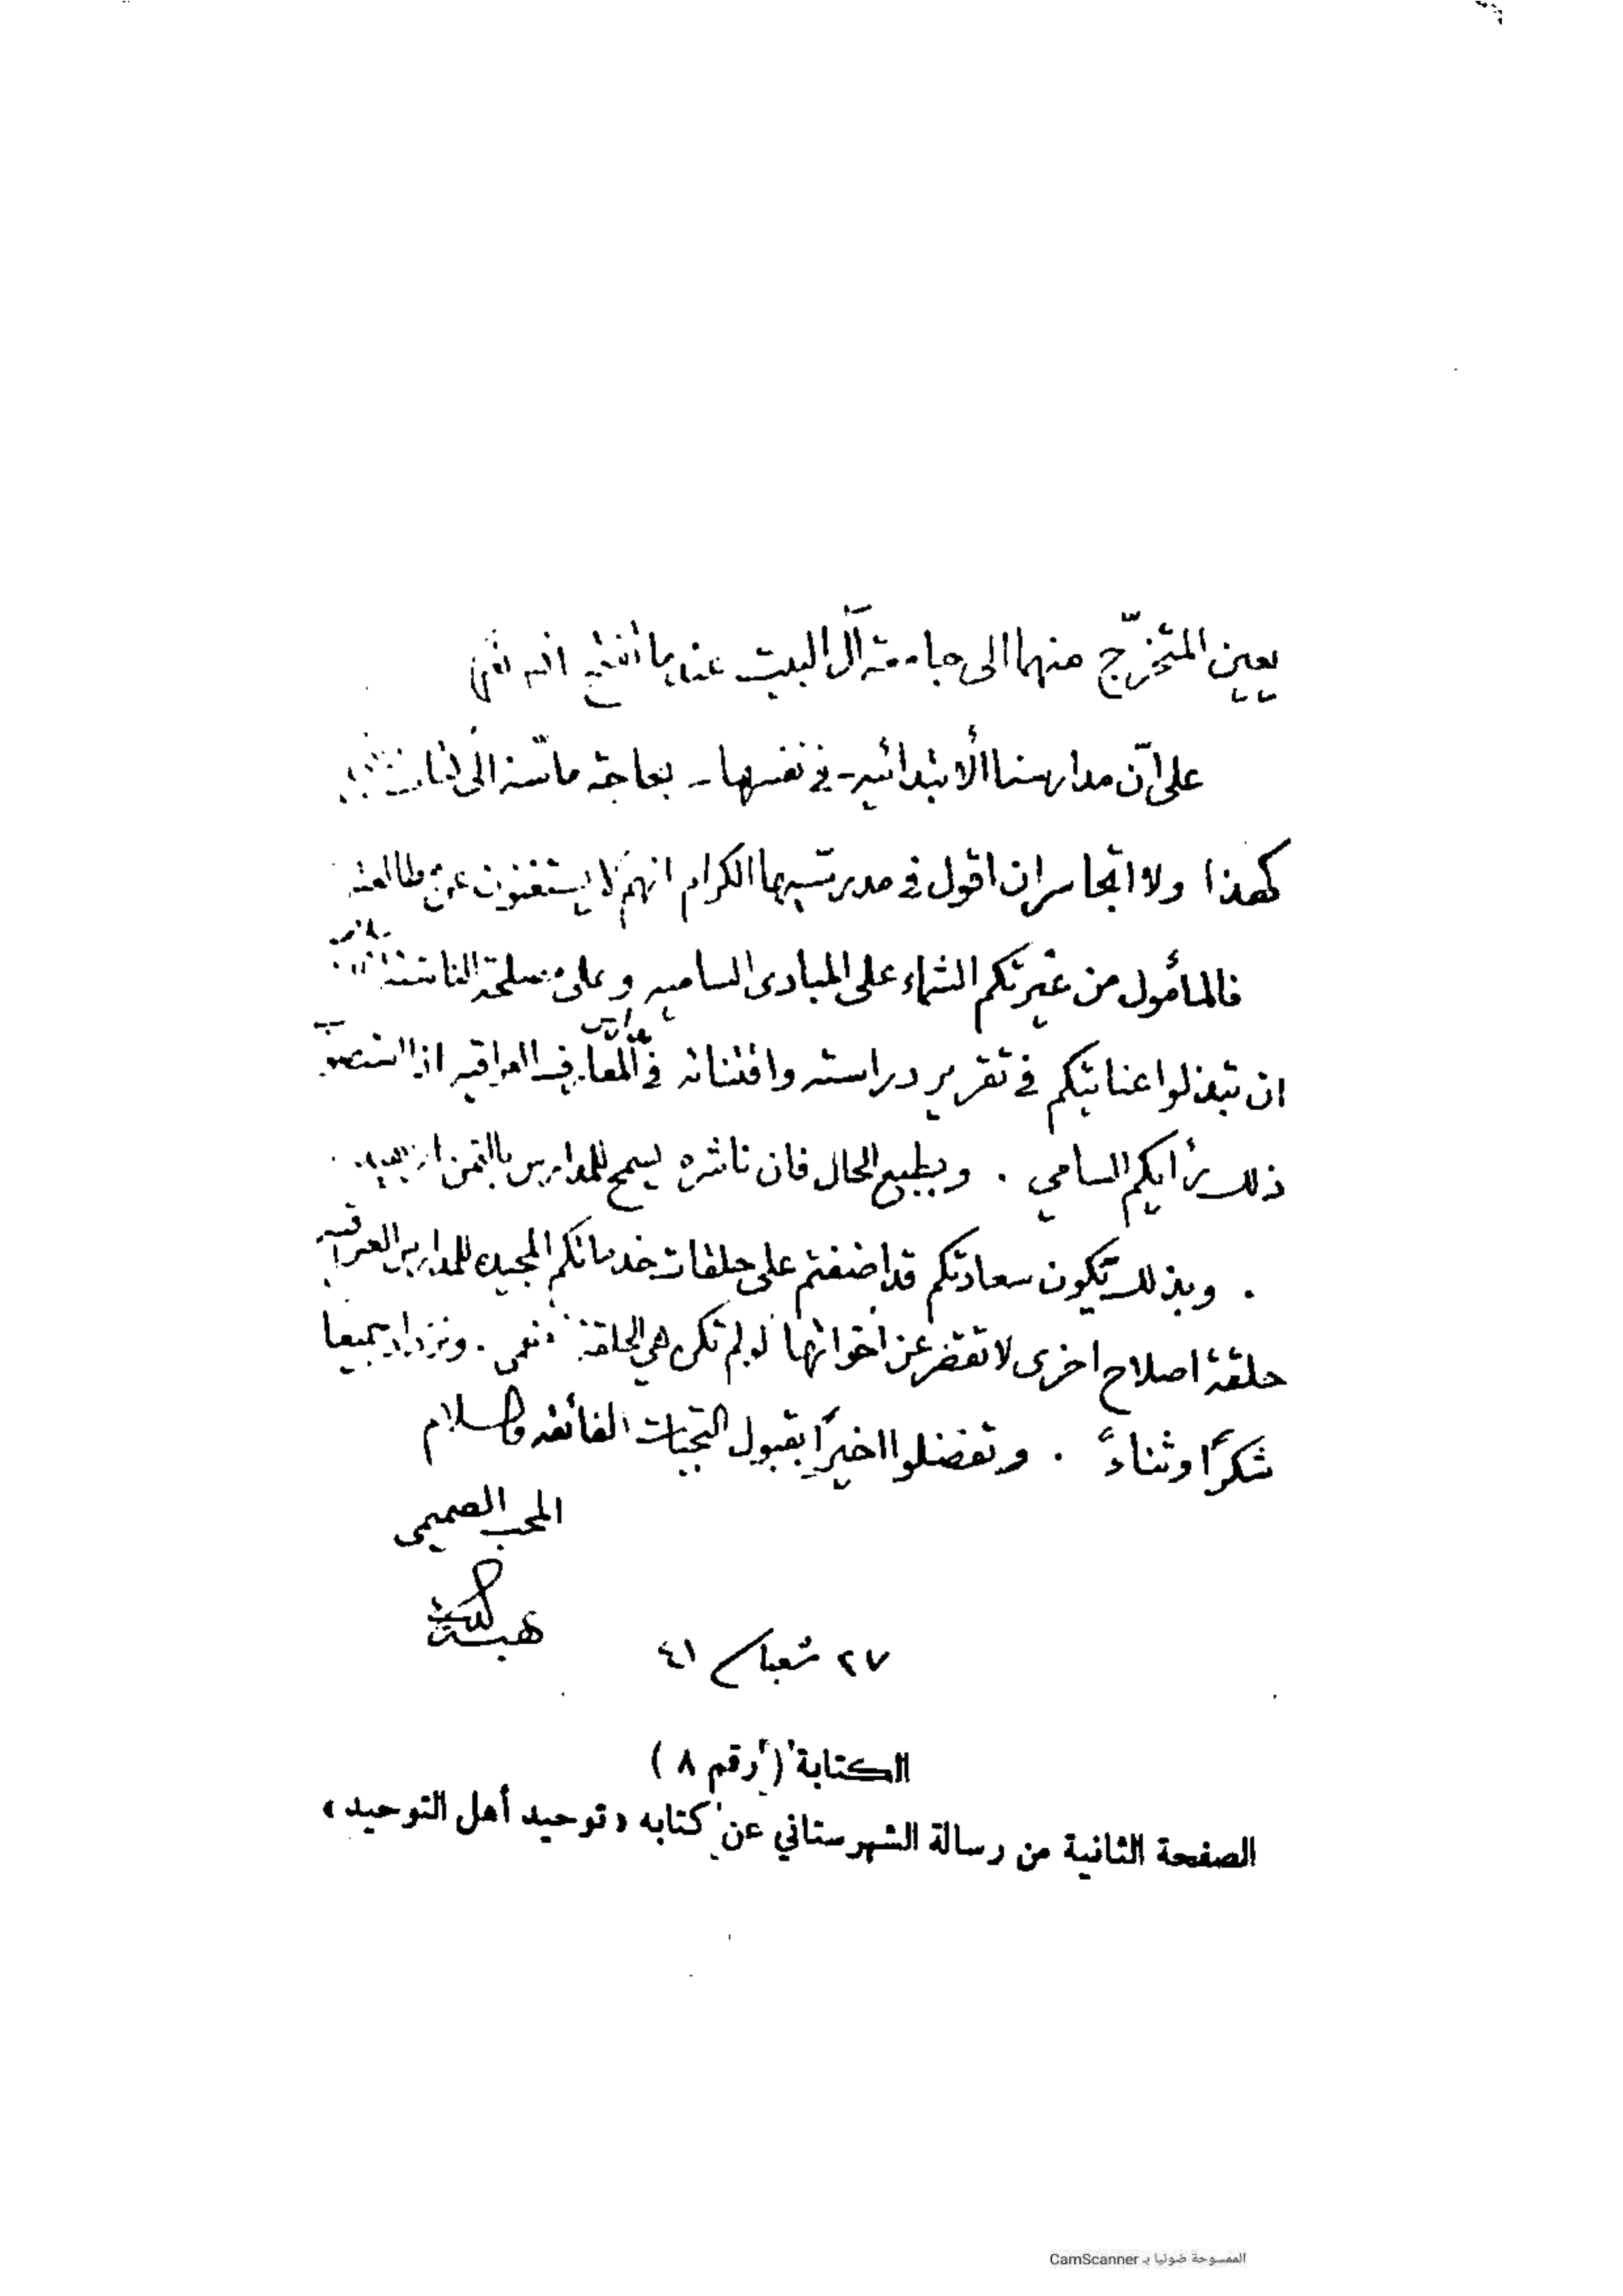 يعين المتخرّج منهما الى جامعة آل البيت عندما تفتتح
على أن مدارسنا الأبتدائيه - في نفسها - بحاجة ماسّة الى كتاب
كهذا ولا اتجاسر ان اقول في مدرسيها الكرام انهم لا يستغنون عن مطالعته
فالمأمول من غيرتكم الشماء على المبادئ الساميه وعلى مصلحة الناشئة
ان تبذلوا عنايتكم في تقرير دراسته واقتنائه في مدارس المعارف العراقيه اذا استصوب
ذلك رأيكم السامي . وبطبيع الحال فان ناشره يسمح للمدارس بالثمن
. وبذلك تكون سعادتكم قد اضفتم على حلقات خدماتكم المجيده للمدارس العراقيه
حلقة اصلاح اخرى لا تقصر عن اخواتها لو لم تكن هي الحلقة . ونزداد جميعا
شكراً وثناءً . وتفضلوا اخيراً بقبول التحيات الفائقه والسلام
المحب الصميمى
هبة
٢٧ شعبان ٤١
الكتابة (رقم ٨)
الصفحة الثانية من رسالة الشهرستاني عن كتابه «توحيد أهل التوحيد»
الممسوحة ضوئيا بـ CamScanner